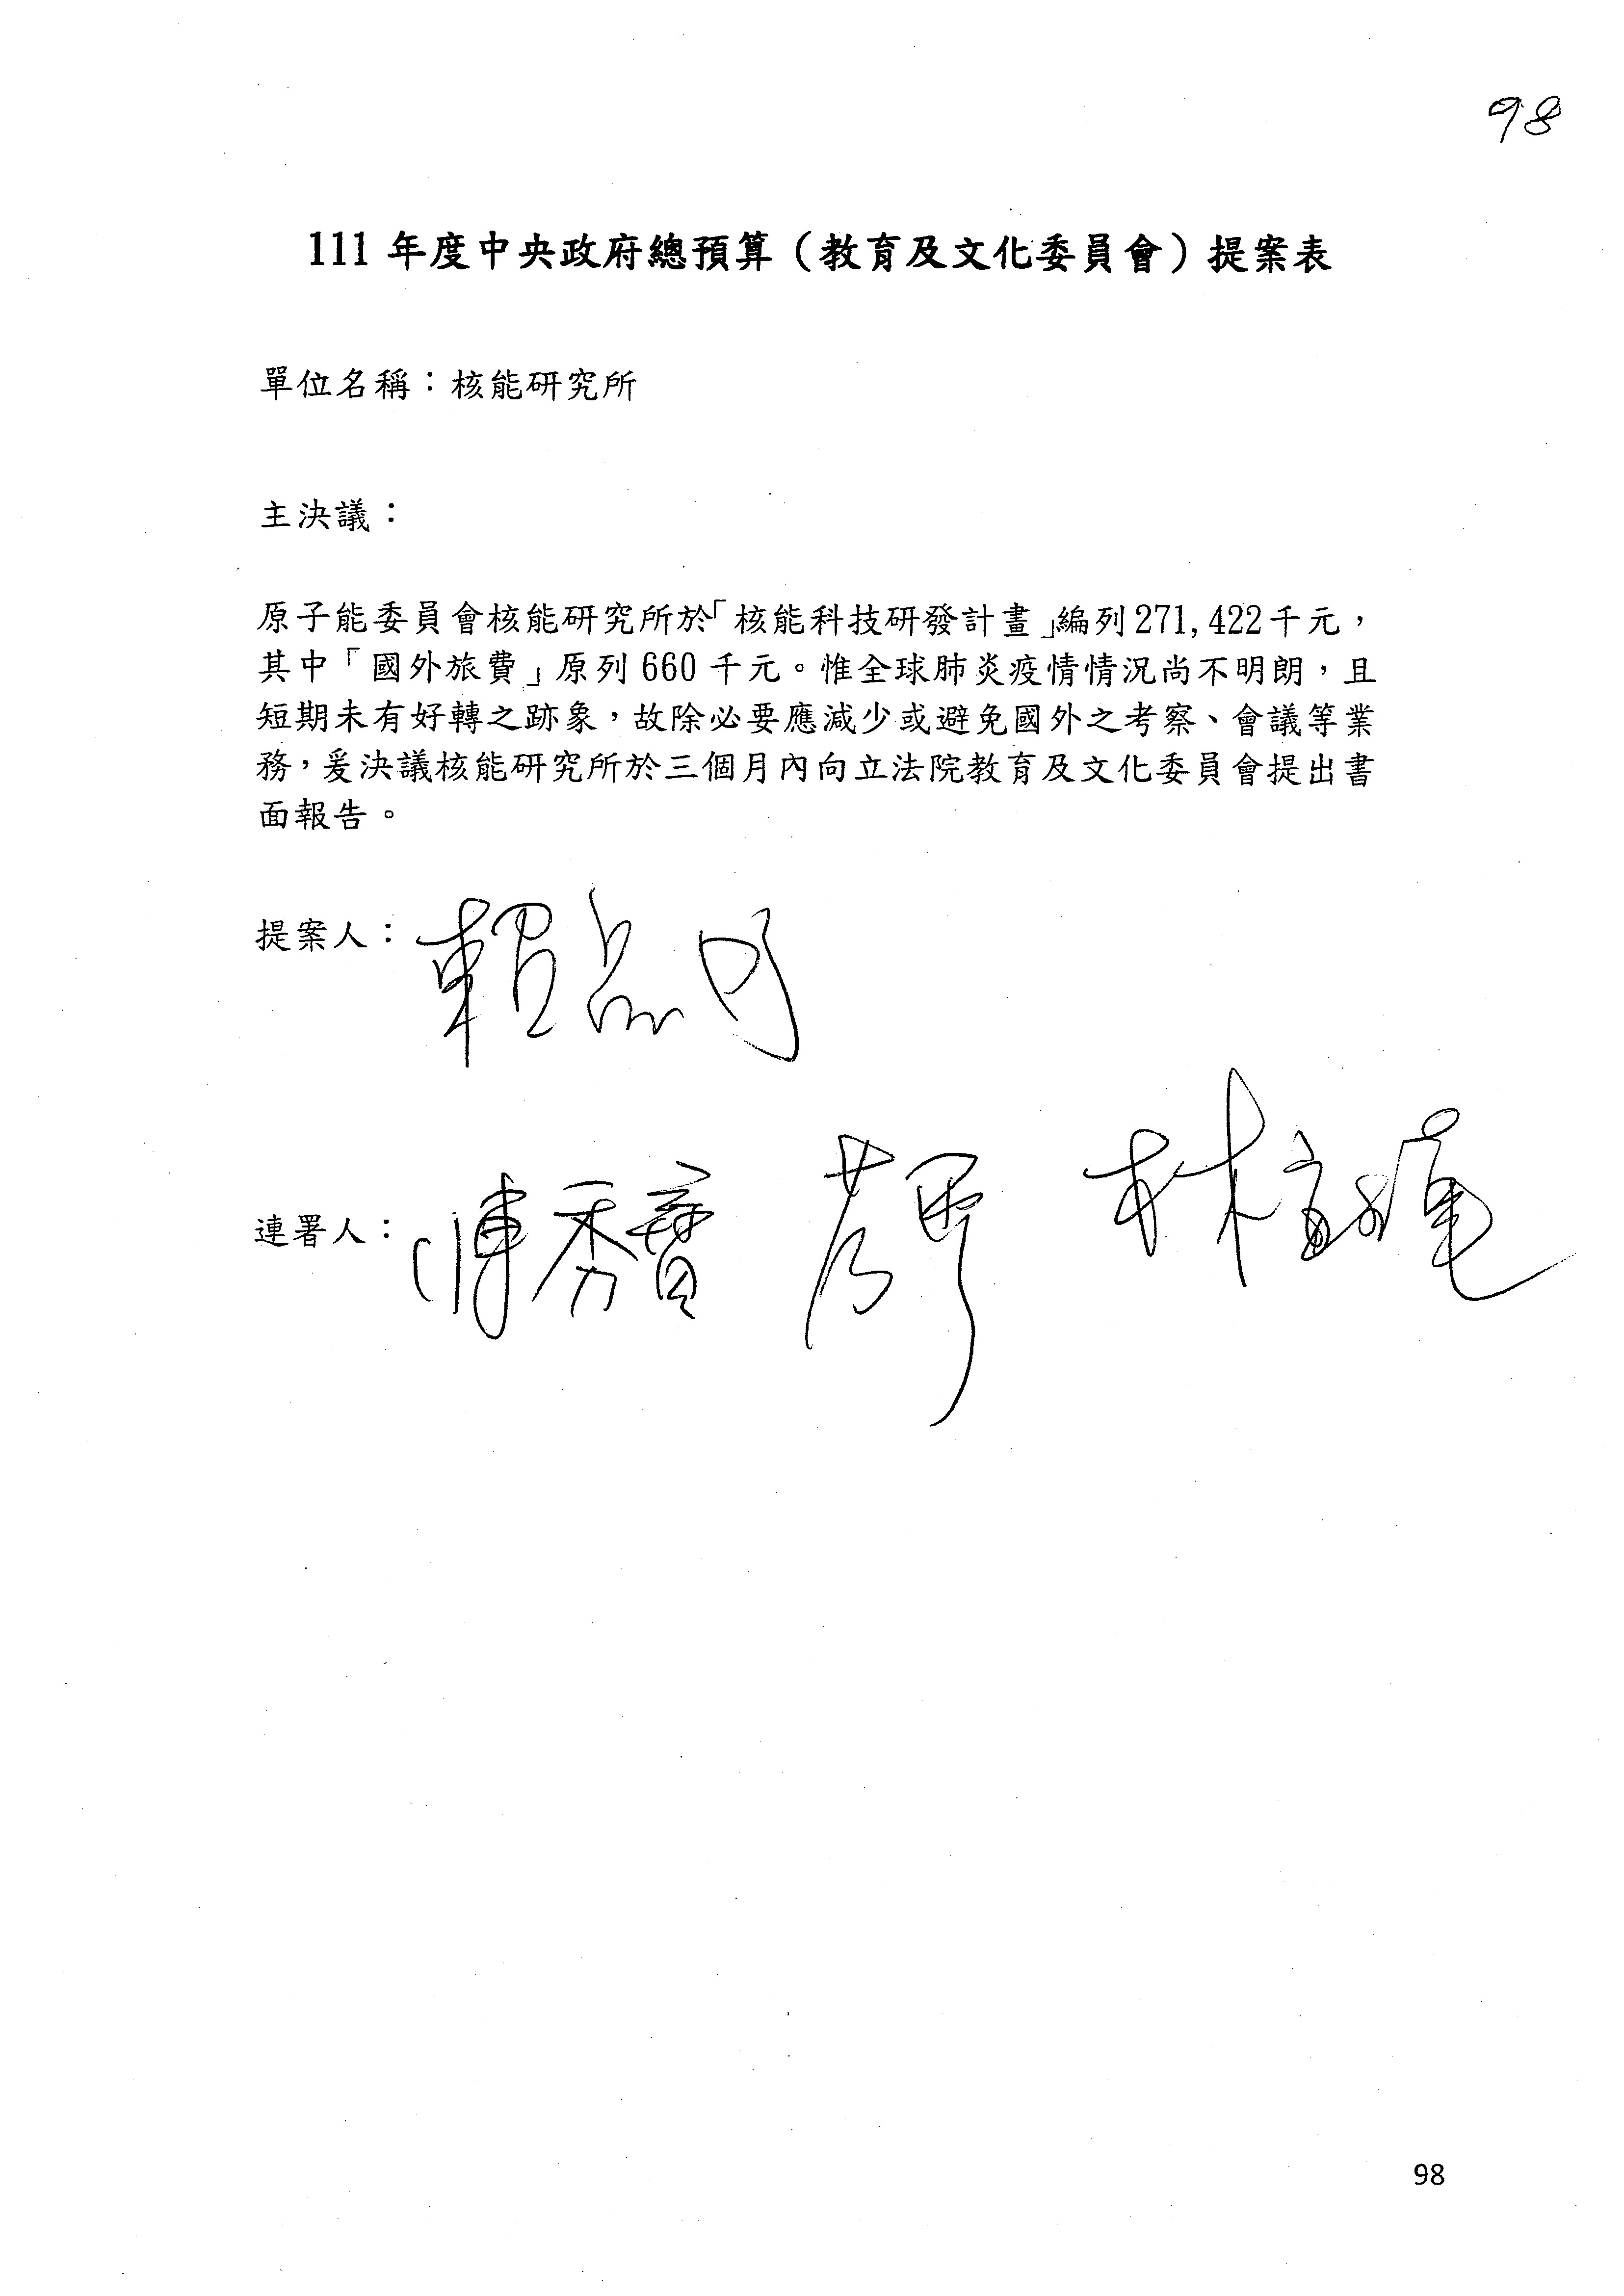 98
111 年度中央政府總預算（教育及文化委員會）提案表
單位名稱：核能研究所
主決議：
原子能委員會核能研究所於「核能科技研發計畫」編列271,422千元，
其中「國外旅費」原列 660 千元。惟全球肺炎疫情情況尚不明朗，且
短期未有好轉之跡象，故除必要應減少或避免國外之考察、會議等業
務，爰決議核能研究所於三個月內向立法院教育及文化委員會提出書
面報告。
提案人：賴品妤
連署人：陳秀寳
98